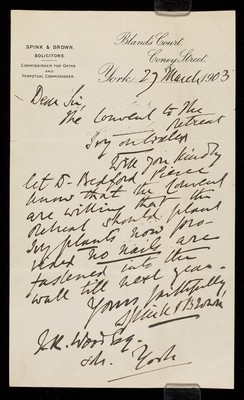 SPINK & BROWN,
SOLICITORS.
COMMISSIONER FOR OATHS
AND
PERPETUAL COMMISSIONER.
Blands Court,
Coney Street,
York 27 March 1903
Dear Sir,
The Convent & The
Retreat
Ivy on Wall
Will you kindly
let Dr Bedford Pierce
know that the Convent
are willing that the
Retreat should plant
Ivy plants now pro-
vided no nails are
fastened into the
wall till next year.
Yours faithfully
Spink & Brown
Wood Esq
York